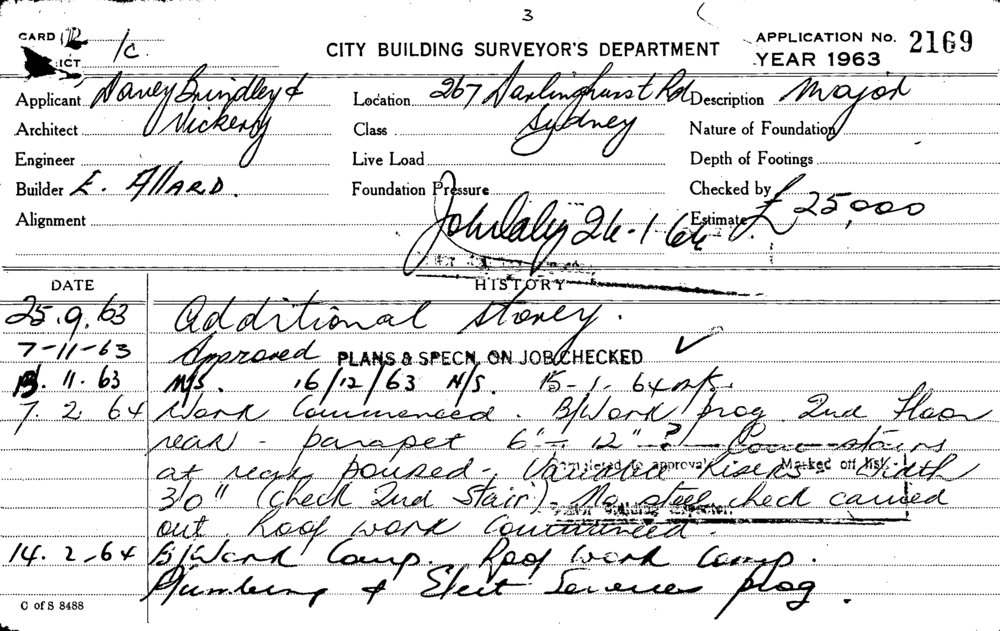 3
CARD 1c.
CITY BUILDING SURVEYOR'S DEPARTMENT
APPLICATION No. 2169
YEAR 1963
Applicant Davey Brindley &
Architect Vickery
Location 267 Darlinghurst Rd
Sydney
Description Major
Class
Nature of Foundation
Engineer
Live Load
Depth of Footings
Builder E. Allard.
Foundation Pressure
Checked by
Alignment
John Daly 24-1 64
Estimate £ 25,000
DATE HISTORY
25.9.63 Additional Storey.
7-11-63 Approved PLANS & SPECN. ON JOB CHECKED ✓
13.11.63 N/S. 16/12/63 N/S. 15-1-64 N/S.
7.2.64 Work Commenced. B/Work prog 2nd Floor
rear - parapet 6" - 12" ? Conc stairs
at rear poured - Risers - Width
Completed to approval Marked off list.
3'0" (check 2nd stair) - No steel check carried
out Roof work Commenced.
14.2-64 B/Work Comp. Roof work Comp.
Plumbing & Elect Services prog.
C of S 8488